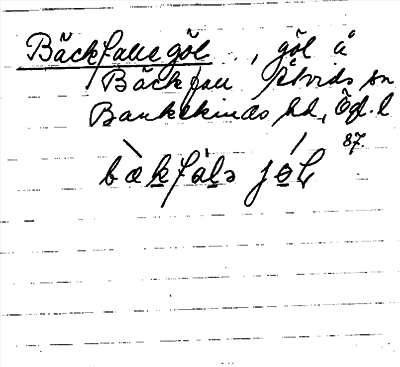 Bäckfalle göl, göl å
Bäckfall Åtvids sn
Bankekinds hd, Ögl. l
87.
bækfalə jöl